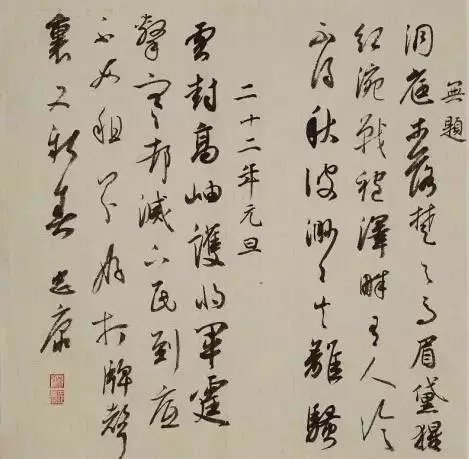 無題
洞庭木落楚天高眉黛猩
紅涴戰袍澤畔有人吟
不得秋波渺々失離騷
二十二年元旦
雲封高岫護將軍霆
擊寒邨滅下民到底
不如租界好打牌聲
裏又新春